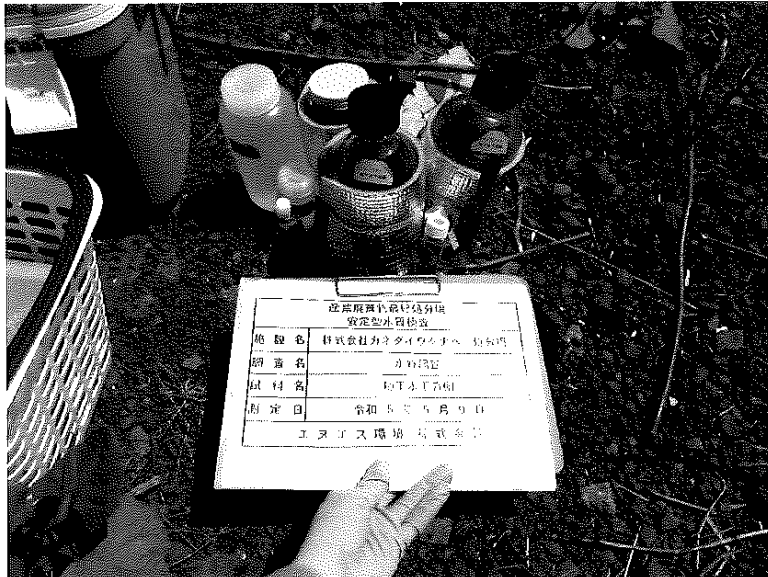 産業廃棄物最終処分場
安定型水質検査
施設名 株式会社カネダイ 処分場
調査名 水質調査
試料名 地下水下流側
測定日 令和 5 年 5 月 9 日
エヌエス環境 株式会社